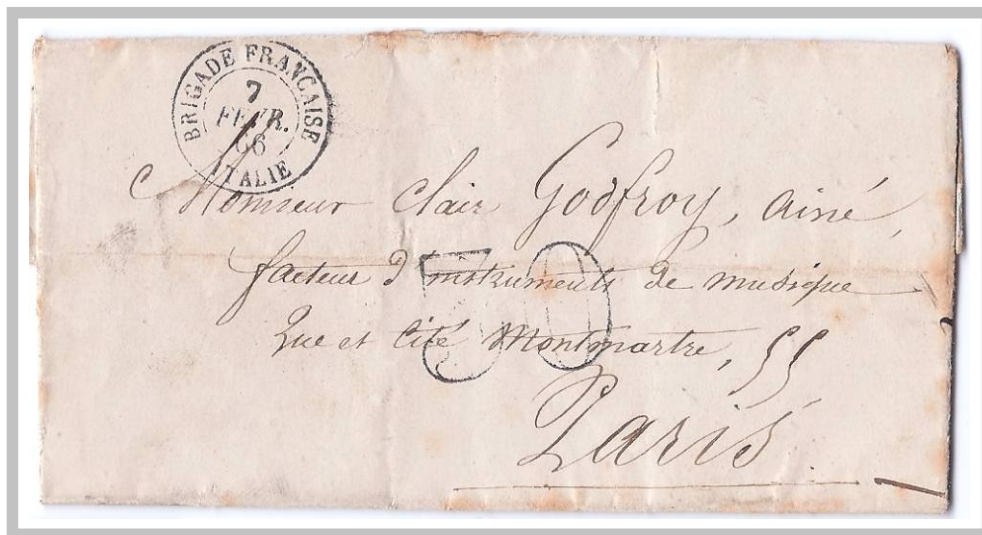 BRIGADE FRANÇAISE
7
FEVR.
66
ITALIE
Monsieur Clair Godfroy, ainé,
facteur d'instruments de musique
Rue et Cité Montmartre, 55
30
Paris